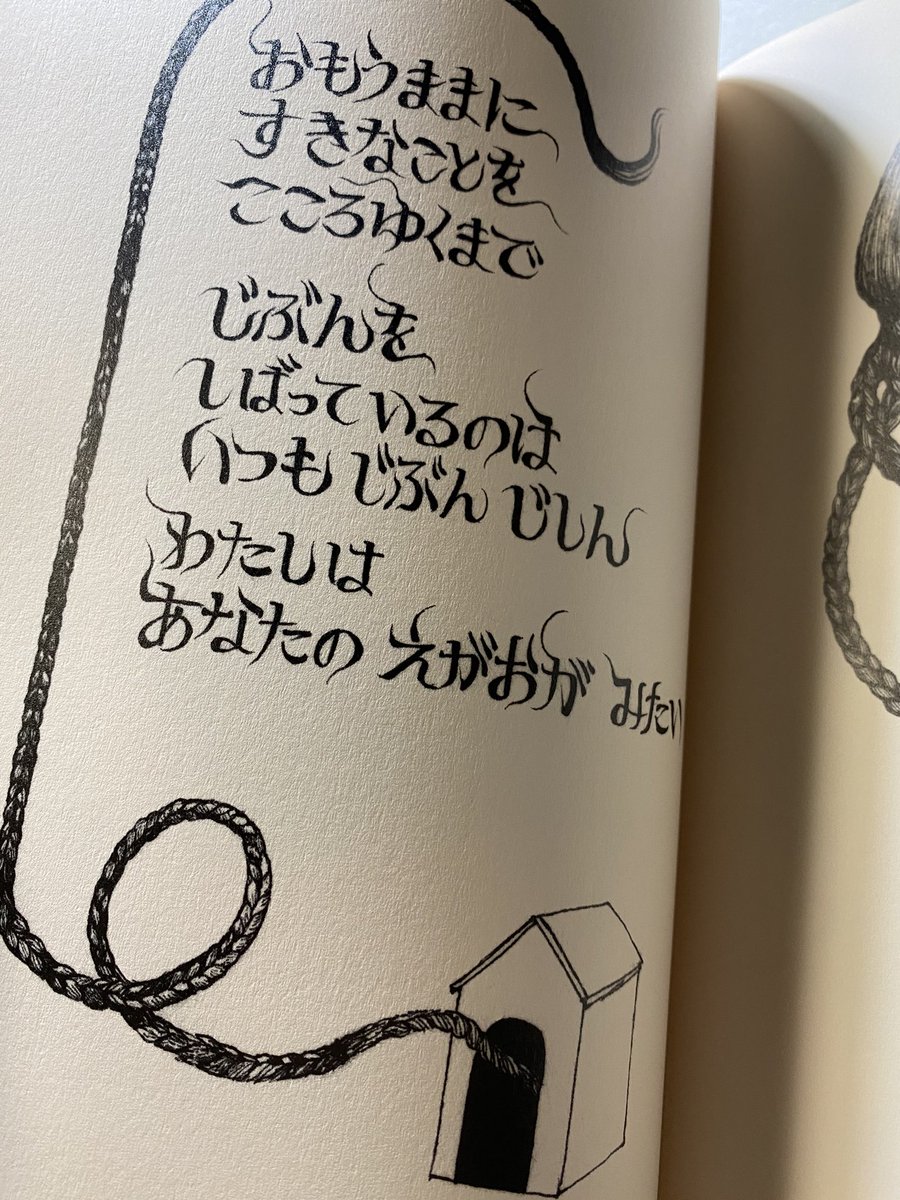 おもうままに
すきなことを
こころゆくまで
じぶんを
しばっているのは
いつも じぶん じしん
わたしは
あなたの えがおが みたい